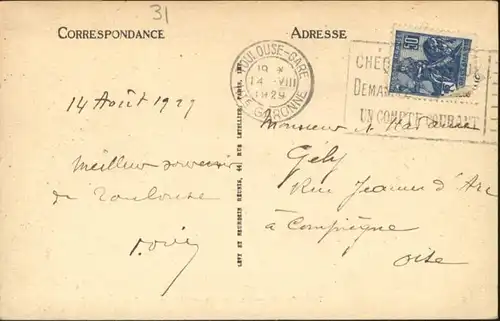 31
CORRESPONDANCE
ADRESSE
TOULOUSE-GARE
19
14 VIII
1929
GARONNE
50
CHÈQ
DEMAN
UN COMPTE COURANT
14 Août 1929
Meilleur souvenir
de Toulouse
Monsieur et Madame
Gély
Rue Jeanne d'Arc
à Compiègne
Oise
LEVY ET NEURDEIN RÉUNIS, 44, RUE LETELLIER, PARIS